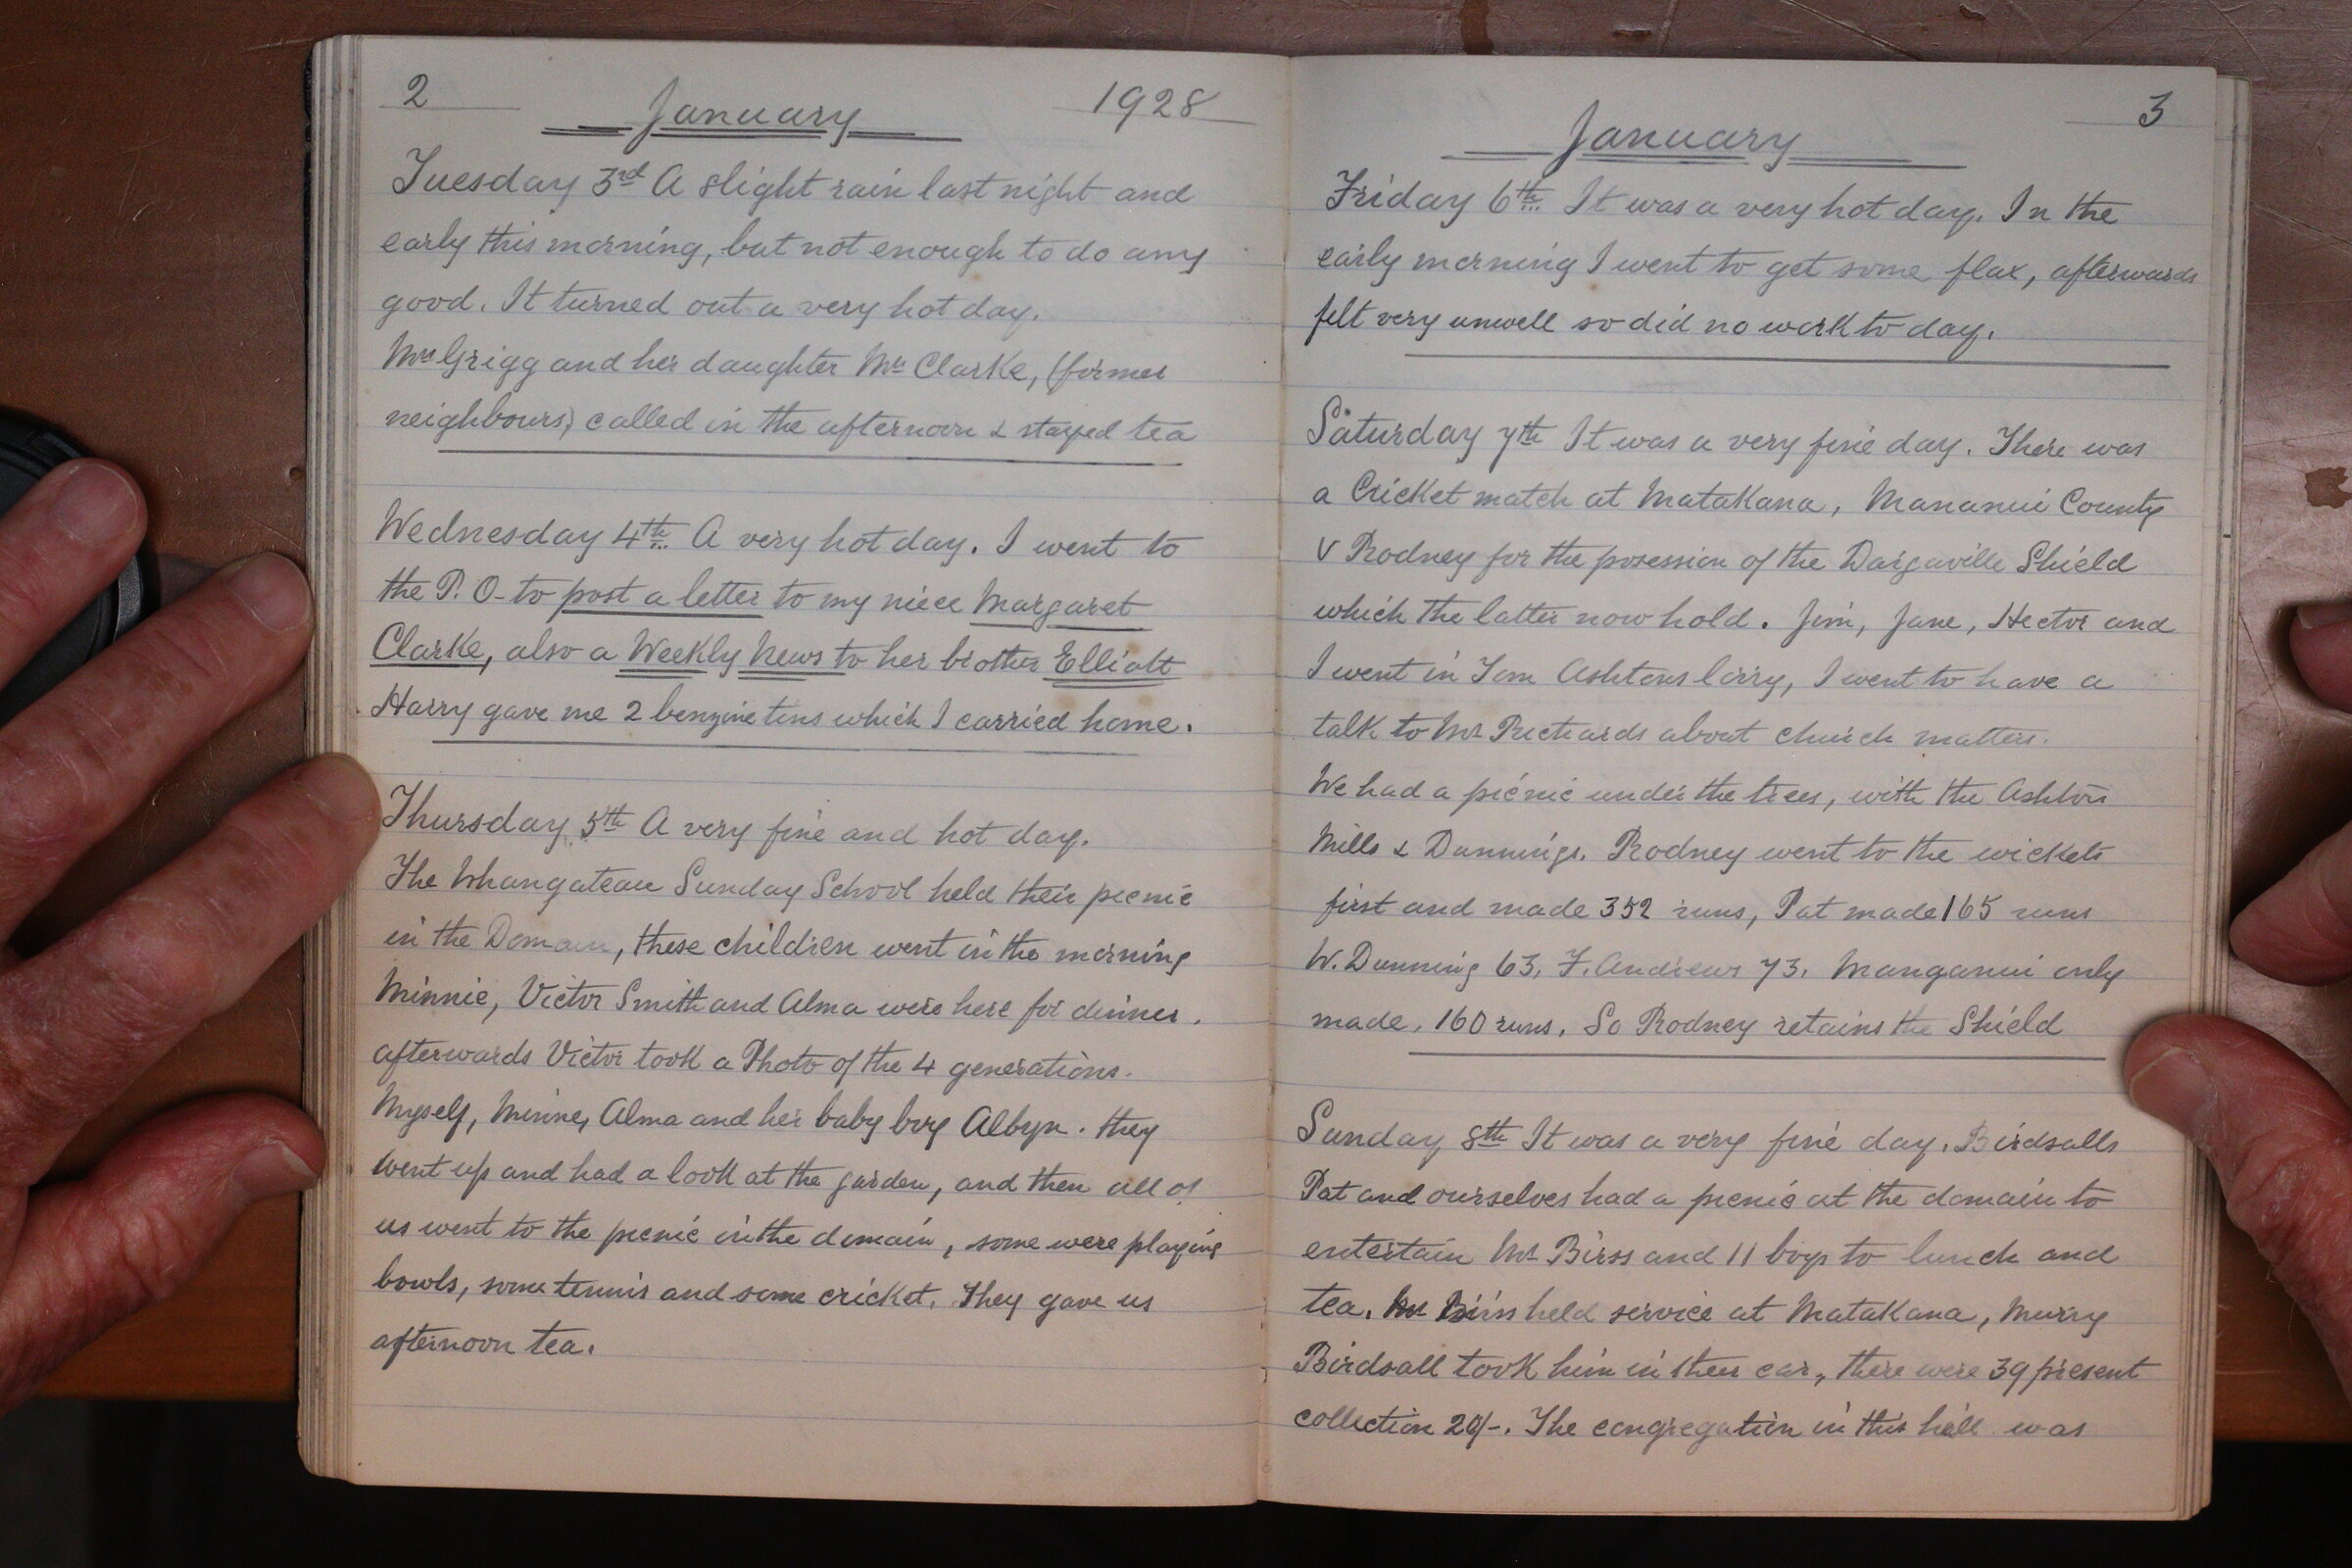 2
January
1928
Tuesday 3rd A slight rain last night and
early this morning, but not enough to do any
good. It turned out a very hot day.
Mrs Grigg and her daughter Mrs Clarke, (former
neighbours) called in the afternoon & stayed tea
Wednesday 4th A very hot day. I went to
the P.O. to post a letter to my niece Margaret
Clarke, also a Weekly News to her brother Elliott
Harry gave me 2 benzine tins which I carried home.
Thursday 5th A very fine and hot day.
The Whangateau Sunday School held their picnic
in the Domain, these children went in the morning
Minnie, Victor Smith and Alma were here for dinner.
afterwards Victor took a Photo of the 4 generations.
Myself, Minne, Alma and her baby boy Albyn. they
went up and had a look at the garden, and then all of
us went to the picnic in the domain, some were playing
bowls, some tennis and some cricket. They gave us
afternoon tea.
January
3
Friday 6th It was a very hot day. In the
early morning I went to get some flax, afterwards
felt very unwell so did no work to day.
Saturday 7th It was a very fine day. There was
a Cricket match at Matakana, County
v Rodney for the posession of the Dargaville Shield
which the latter now hold. Jim, Jane, Hector and
I went in Tom Ashtons lorry, I went to have a
talk to Mr about church matters.
We had a picnic under the trees, with the Ashton
Mills & Dunnings. Rodney went to the wickets
first and made 352 runs, Pat made 165 runs
W. Dunning 63, F. Andrews 73. Manganui only
made. 160 runs. So Rodney retains the Shield
Sunday 8th It was a very fine day. Birdsalls
Pat and ourselves had a picnic at the domain to
entertain Mr Birss and 11 boys to lunch and
tea. Mr held service at Matakana, Murry
Birdsall took him in their car, there were 39 present
collection The congregation in this hall was